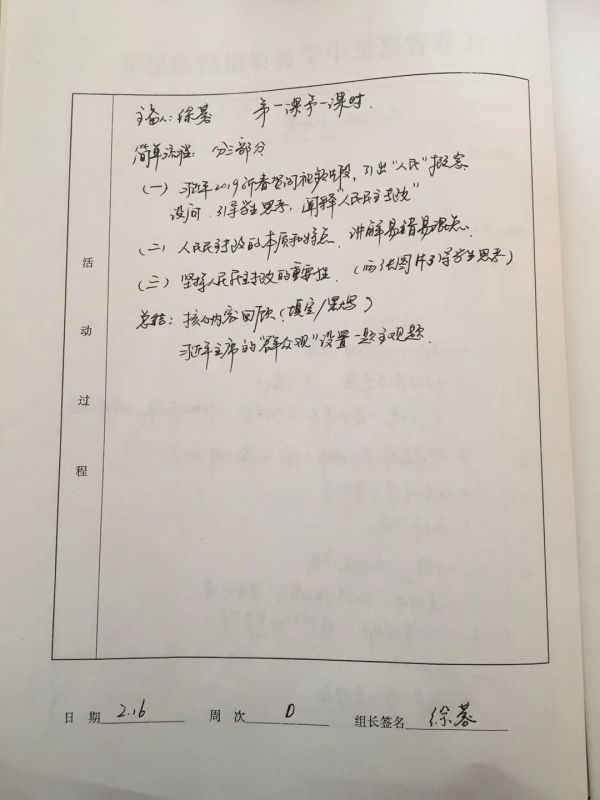 主备人: 徐蓉 第一课第一课时.
简单流程: 分三部分
(一) 习近平2019新春贺词视频片段, 引出"人民"概念.
设问. 引导学生思考, 阐释"人民民主专政"
(二) 人民民主专政的本质和特点. 讲解易错易混点.
(三) 坚持人民民主专政的重要性. (两张图片引导学生思考)
总结: 核心内容回顾 (填空/默写)
习近平主席的"群众观"设置一题主观题.
活动过程
日 期 2.16 周 次 组长签名 徐蓉